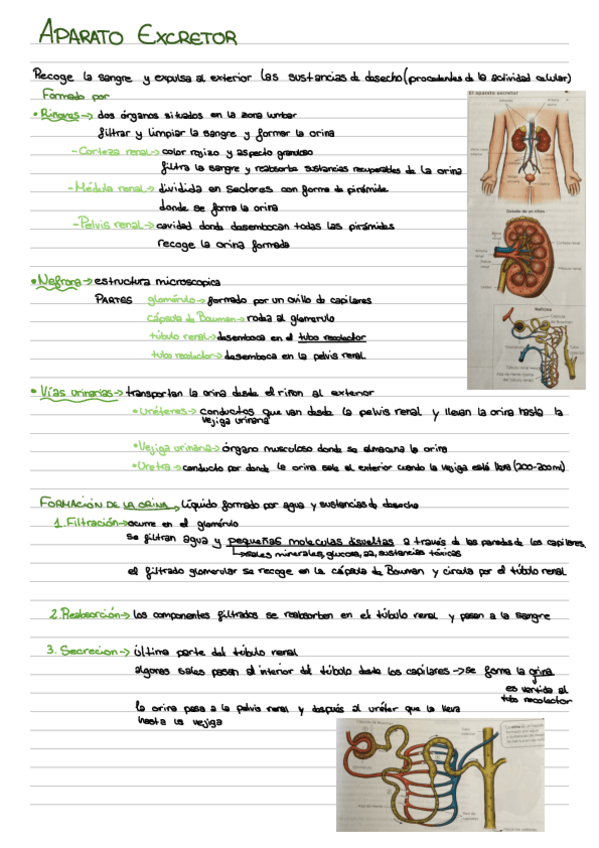 APARATO EXCRETOR
Recoge la sangre y expulsa al exterior las sustancias de desecho (procedentes de la actividad celular)
Formado por
• Riñones → dos órganos situados en la zona lumbar
filtrar y limpiar la sangre y formar la orina
- Corteza renal → color rojizo y aspecto granuloso
filtra la sangre y reabsorbe sustancias recuperables de la orina
- Médula renal → dividida en sectores con forma de pirámide
donde se forma la orina
- Pelvis renal → cavidad donde desembocan todas las pirámides
recoge la orina formada
• Nefrona → estructura microscopica
PARTES glomérulo → formado por un ovillo de capilares
cápsula de Bouman → rodea al glomerulo
túbulo renal → desemboca en el tubo recolector
tubo recolector → desemboca en la pelvis renal
El aparato excretor
Detalle de un riñón
Nefrona
• Vías urinarias → transportan la orina desde el riñon al exterior
• Uréteres → conductos que van desde la pelvis renal y llevan la orina hasta la
vejiga urinaria
• Vejiga urinaria → órgano musculoso donde se almacena la orina
• Uretra → conducto por donde la orina sale al exterior cuando la vejiga está llena (200-300ml)
FORMACIÓN DE LA ORINA → líquido formado por agua y sustancias de desecho
1. Filtración → ocurre en el glomérulo
se filtran agua y pequeñas moleculas disueltas a través de las paredes de los capilares
↳ sales minerales, glucosa, aa, sustancias tóxicas
el filtrado glomerular se recoge en la cápsula de Bouman y circula por el túbulo renal
2. Reabsorción → los componentes filtrados se reabsorben en el túbulo renal y pasan a la sangre
3. Secrecion → última parte del túbulo renal
algunas sales pasan al interior del túbulo desde los capilares → se forma la orina
es vertida al
tubo recolector
la orina pasa a la pelvis renal y después al uréter que la lleva
hasta la vejiga